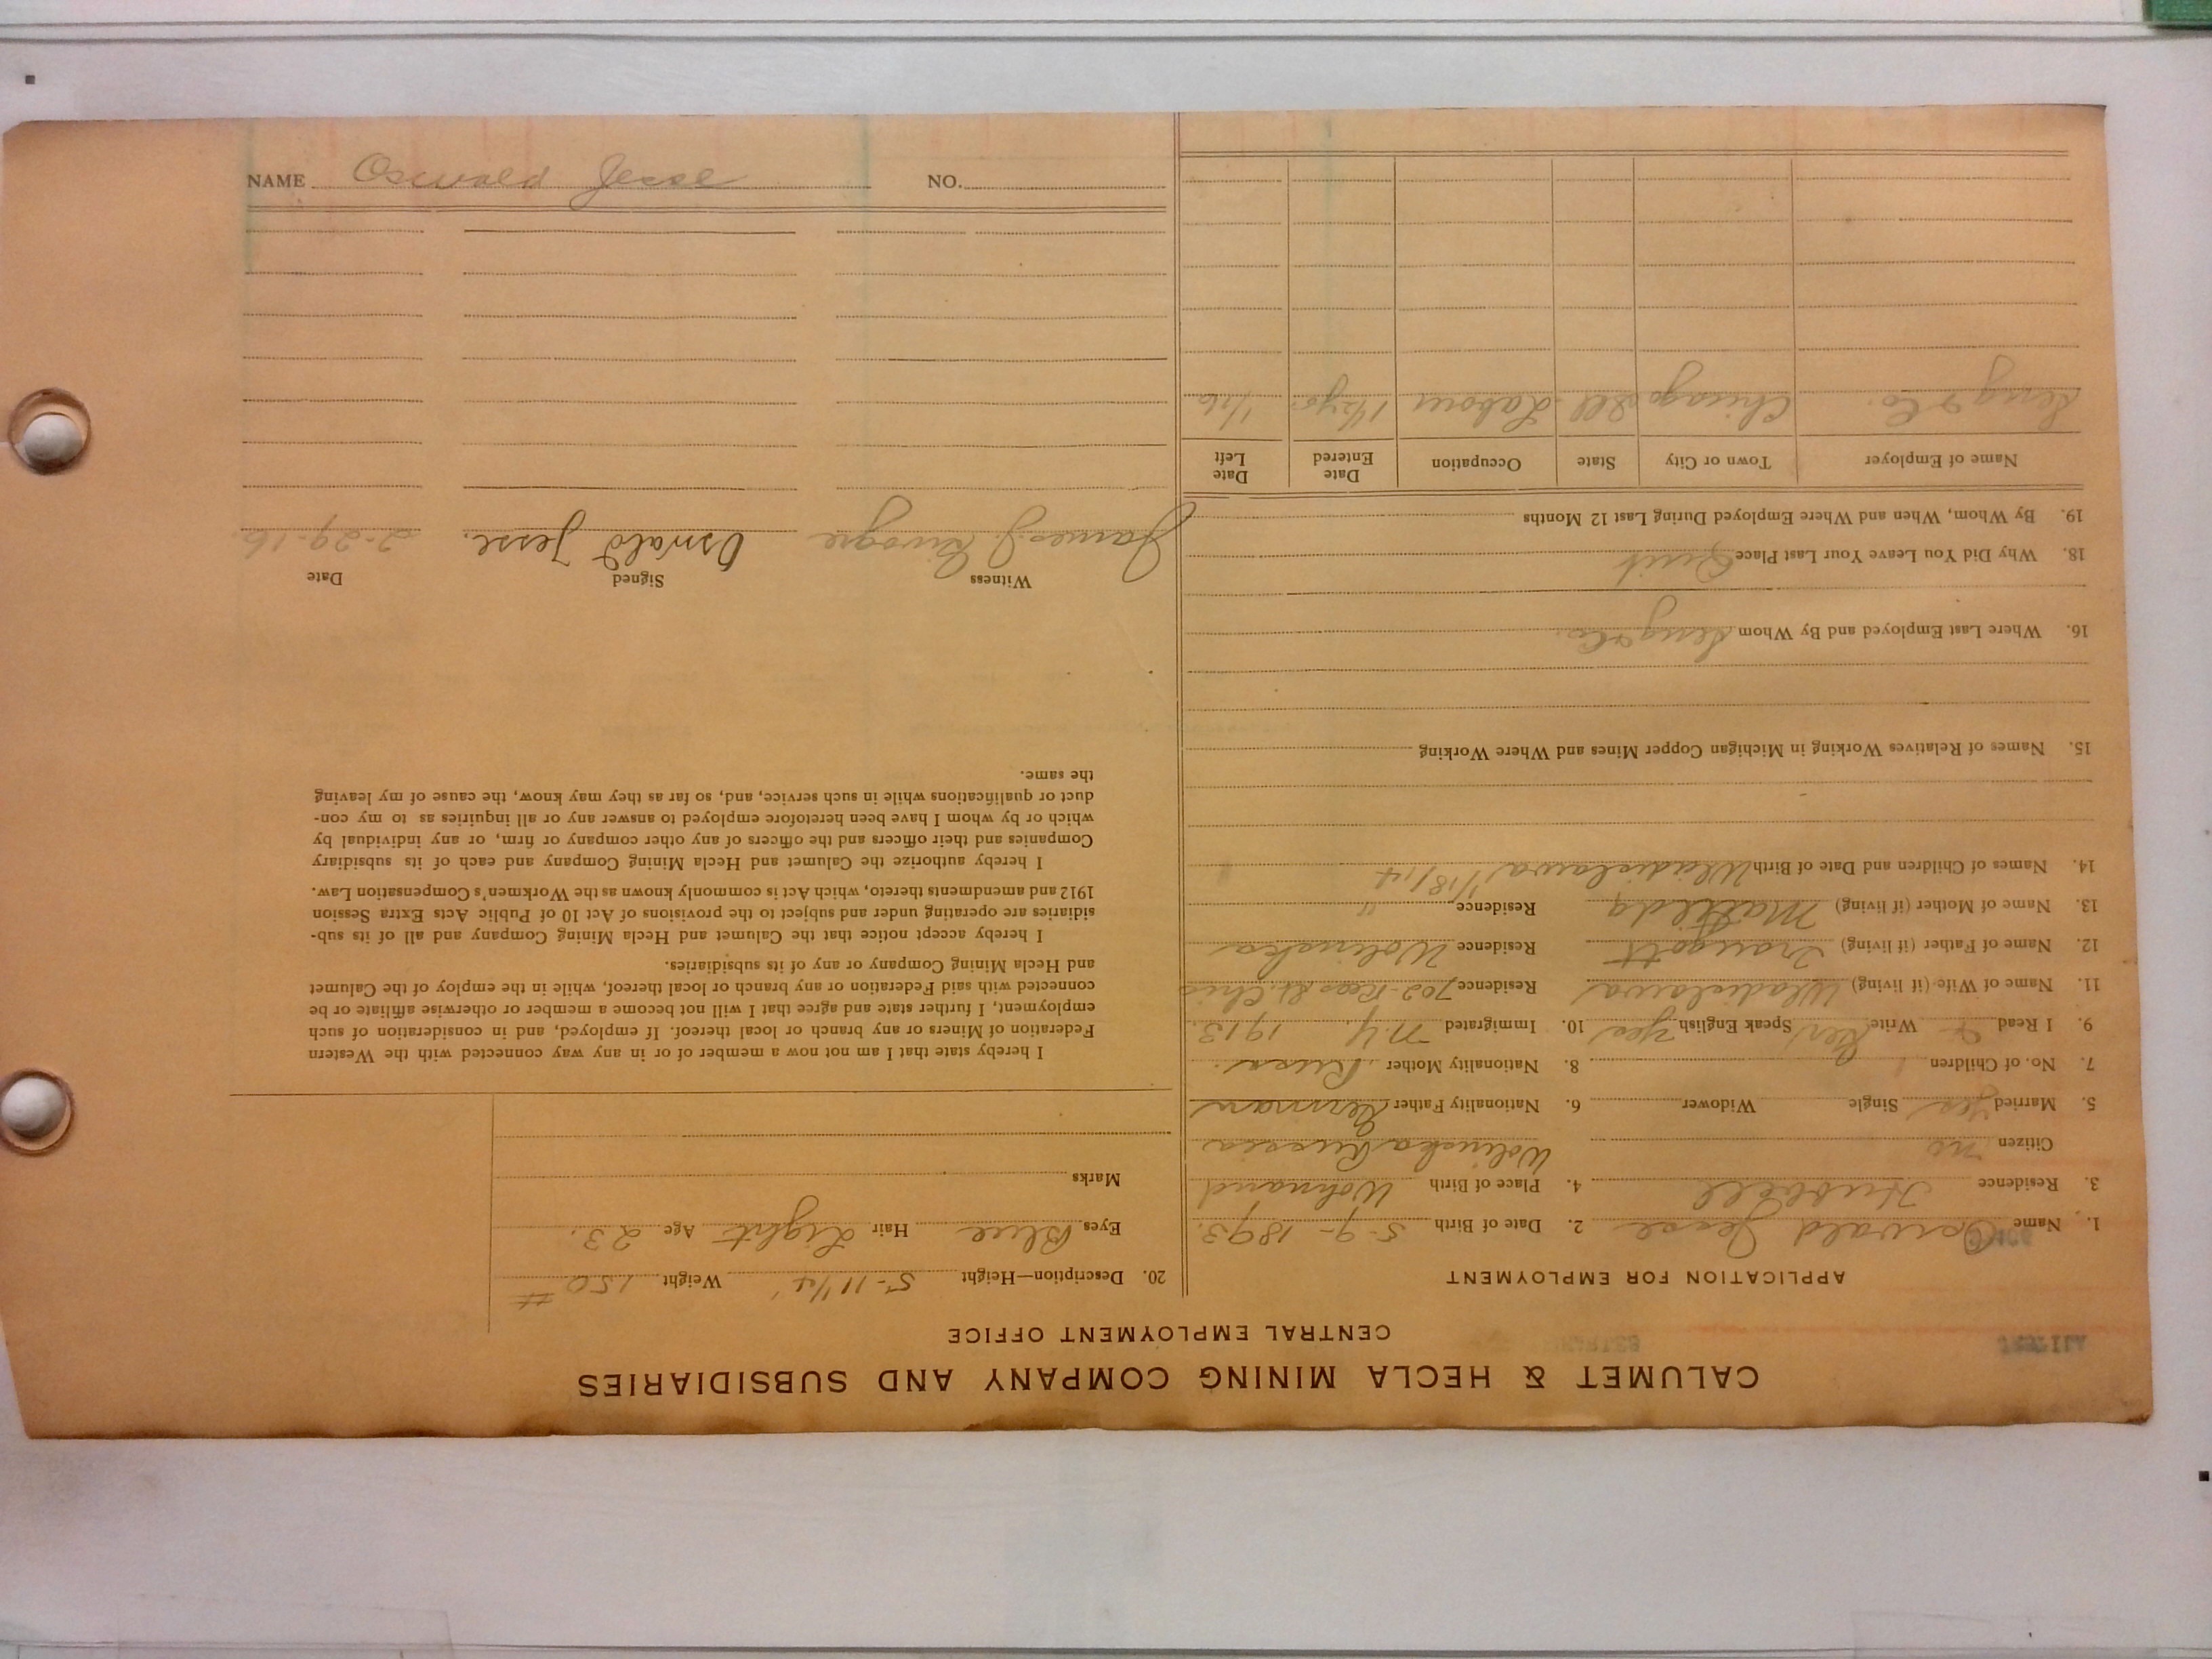 NAME Oswald Jesse NO.
CALUMET & HECLA MINING COMPANY AND SUBSIDIARIES
CENTRAL EMPLOYMENT OFFICE
APPLICATION FOR EMPLOYMENT
1. Name Oswald Jesse 2. Date of Birth 5-9-1893.
3. Residence Hubbell 4. Place of Birth
Citizen no Wolinska Russia
5. Married Yes Single Widower 6. Nationality Father German
7. No. of Children 1 8. Nationality Mother Russ.
9. I Read Write Ger Speak English Yes 10. Immigrated N.Y. 1913.
11. Name of Wife (if living) Wladislawa Residence 702
12. Name of Father (if living) Traugott Residence Wolinska
13. Name of Mother (if living) Matilda Residence "
14. Names of Children and Date of Birth Wladislawa 1/18/14
15. Names of Relatives Working in Michigan Copper Mines and Where Working
16. Where Last Employed and By Whom & Co.
18. Why Did You Leave Your Last Place Quit
19. By Whom, When and Where Employed During Last 12 Months
Name of Employer Town or City State Occupation Date Entered Date Left
& Co. Chicago Ill. Labour 1 1/2 yr. 1/16
20. Description—Height 5-11 1/4" Weight 150 #
Eyes Blue Hair Light Age 23.
Marks
I hereby state that I am not now a member of or in any way connected with the Western
Federation of Miners or any branch or local thereof. If employed, and in consideration of such
employment, I further state and agree that I will not become a member or otherwise affiliate or be
connected with said Federation or any branch or local thereof, while in the employ of the Calumet
and Hecla Mining Company or any of its subsidiaries.
I hereby accept notice that the Calumet and Hecla Mining Company and all of its sub-
sidiaries are operating under and subject to the provisions of Act 10 of Public Acts Extra Session
1912 and amendments thereto, which Act is commonly known as the Workmen's Compensation Law.
I hereby authorize the Calumet and Hecla Mining Company and each of its subsidiary
Companies and their officers and the officers of any other company or firm, or any individual by
which or by whom I have been heretofore employed to answer any or all inquiries as to my con-
duct or qualifications while in such service, and, so far as they may know, the cause of my leaving
the same.
Witness Signed Date
James J. Oswald Jesse. 2-29-16.